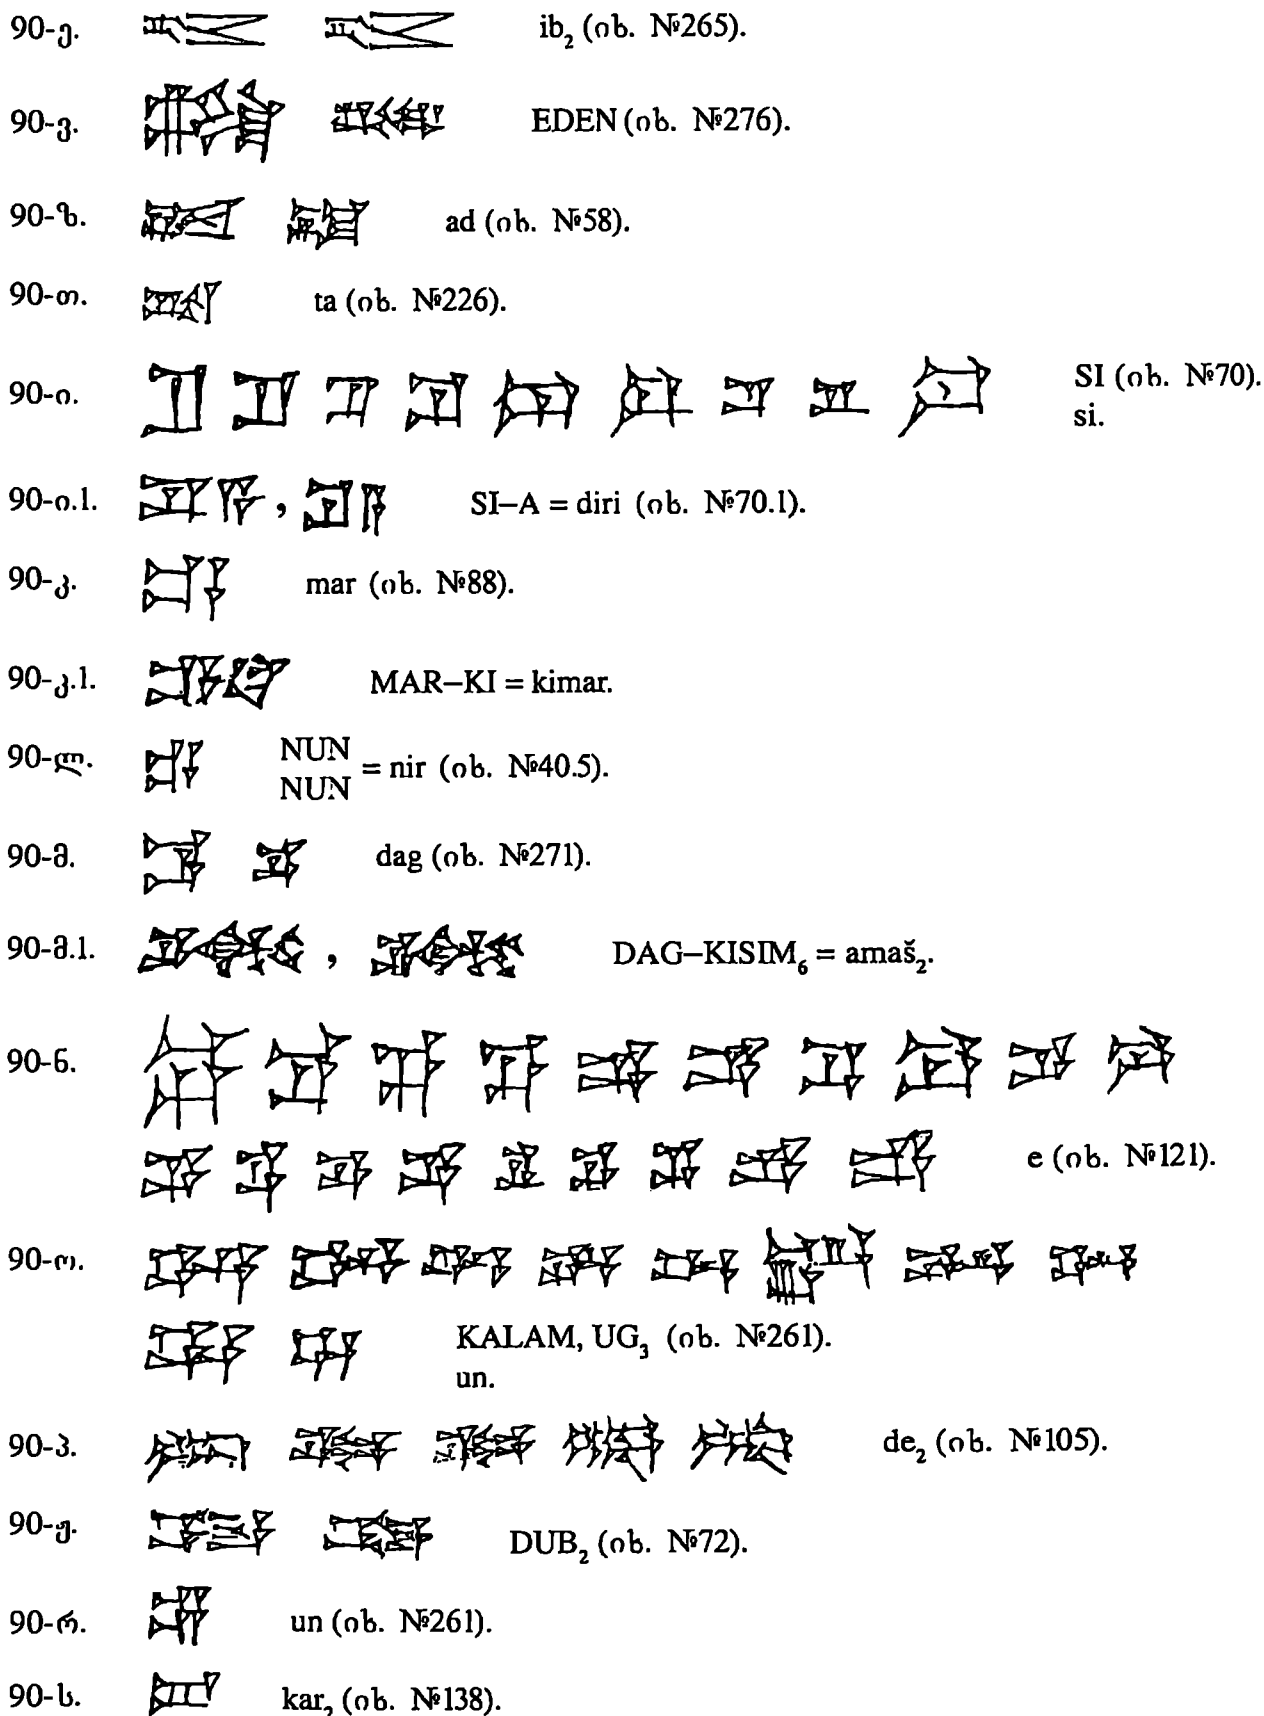 90-ე. ib₂ (იხ. №265).
90-ვ. EDEN (იხ. №276).
90-ზ. ad (იხ. №58).
90-თ. ta (იხ. №226).
90-ი. SI (იხ. №70).
si.
90-ი.1. , SI–A = diri (იხ. №70.1).
90-კ. mar (იხ. №88).
90-კ.1. MAR–KI = kimar.
90-ლ. NUN
NUN = nir (იხ. №40.5).
90-მ. dag (იხ. №271).
90-მ.1. , DAG–KISIM₆ = amaš₂.
90-ნ.
e (იხ. №121).
90-ო.
KALAM, UG₃ (იხ. №261).
un.
90-პ. de₂ (იხ. №105).
90-ჟ. DUB₂ (იხ. №72).
90-რ. un (იხ. №261).
90-ს. kar₂ (იხ. №138).